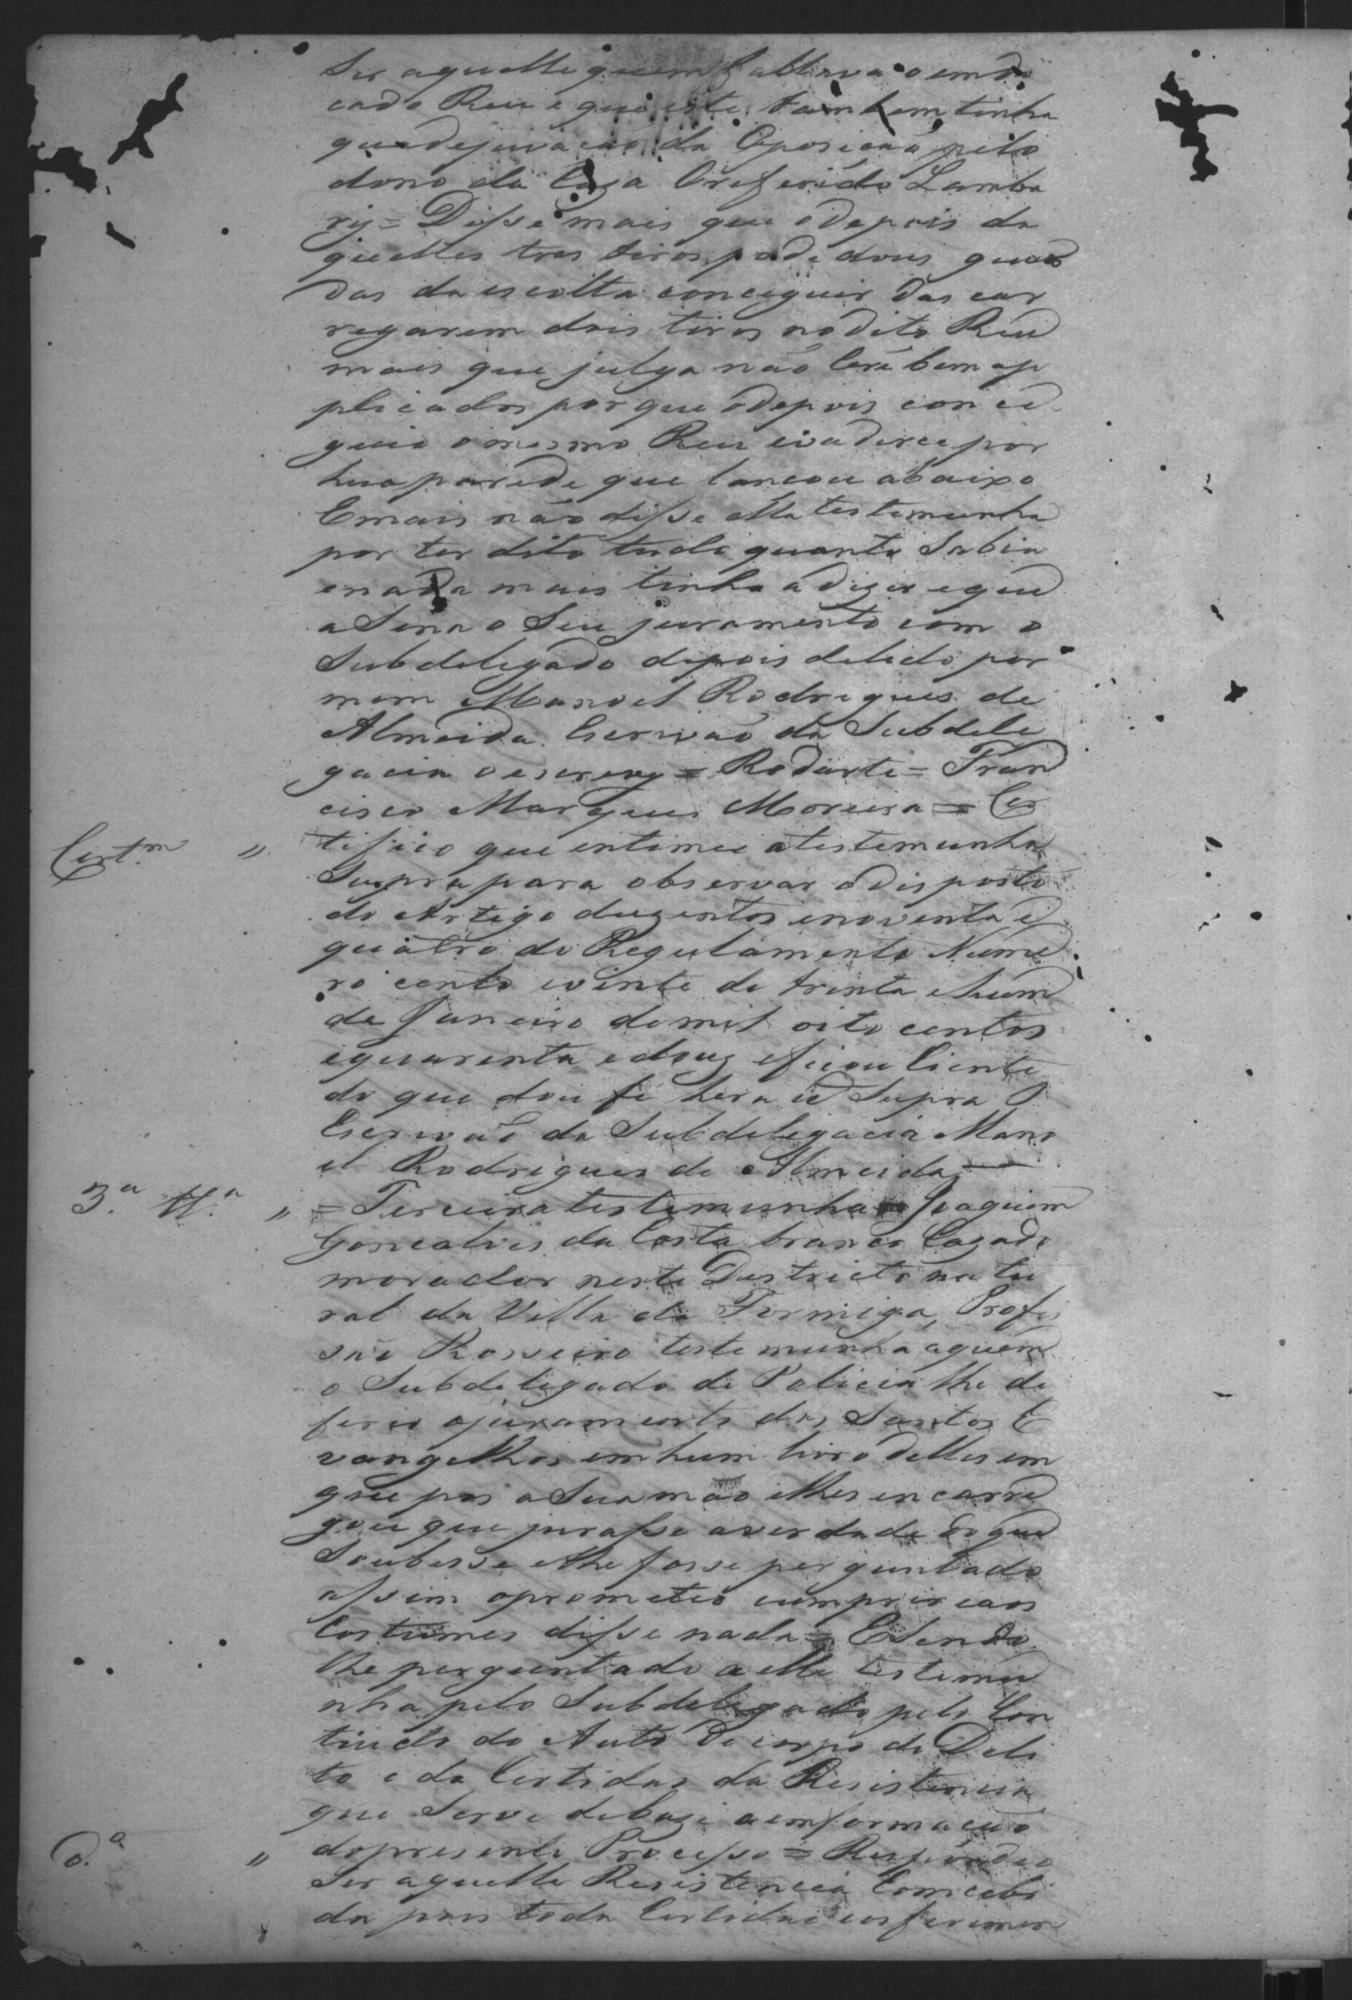 Ser aquelle quem fallava o endi
cado Reu e que este tambem tinha
que da Oposicaõ pelo
dono da Caza Oreferido Lamba
ry = Disse mais que odepois da
quelles tres tiros pode dous guar
das da escolta conceguir descar
regarem dois tiros no dito Reu
mais que julga não Cerê bem ap
plicados por que odepois conce
guio o mesmo Reu evadirce por
hua parede que lancou abaixo
Emais não disse ella testemunha
por ter dito tudo quanto Sabia
enada mais tinha adizer eque
aSina o Seu juramento com o
Subdelegado depois delido por
mim Manoel Rodrigues de
Almeida Escrivaõ da Subdele
gacia oescrevy = Rodarte = Fran
cisco Marques Moreira = Cer
Cert.m " tifico que entimei atestemunha
Supra para observar odisposto
do Artigo duzentos enoventa e
quatro do Regulamento Nume
ro cento evinte de trinta ehum
de Janeiro demil oito centos
equarenta edouz eficou Ciente
do que dou fé hera ut Supra O
Escrivaõ da Subdelegacia Mano
el Rodrigues de Almeida
3.a tt.a " = Terceira testemunha = Joaquim
Goncalves da Costa branco Cazado
morador neste Destricto natu
ral da Villa da Formiga, Profis
saõ Rosseiro testemunha aquem
o Subdelegado de Policia lhe de
ferio ojuramento dos Santos E
vangelhos em hum livro delles em
que pos a Sua mão elhes encarre
gou que jurasse averdade do que
Soubesse elhe fosse perguntado
assim oprometeo cumprir eaos
Costumes disse nada = ESendo
lhe perguntado a elle testemu
nha pelo Subdelegado pelo Con
tiudo do Auto de corpo de Deli
to e da Certidaõ da Resistencia
que Serve debaze aemformacaõ
D.a " dopresente Processo = Respondeo
Ser aquelle Resistencia Comcebi
da pois toda Certidaõ